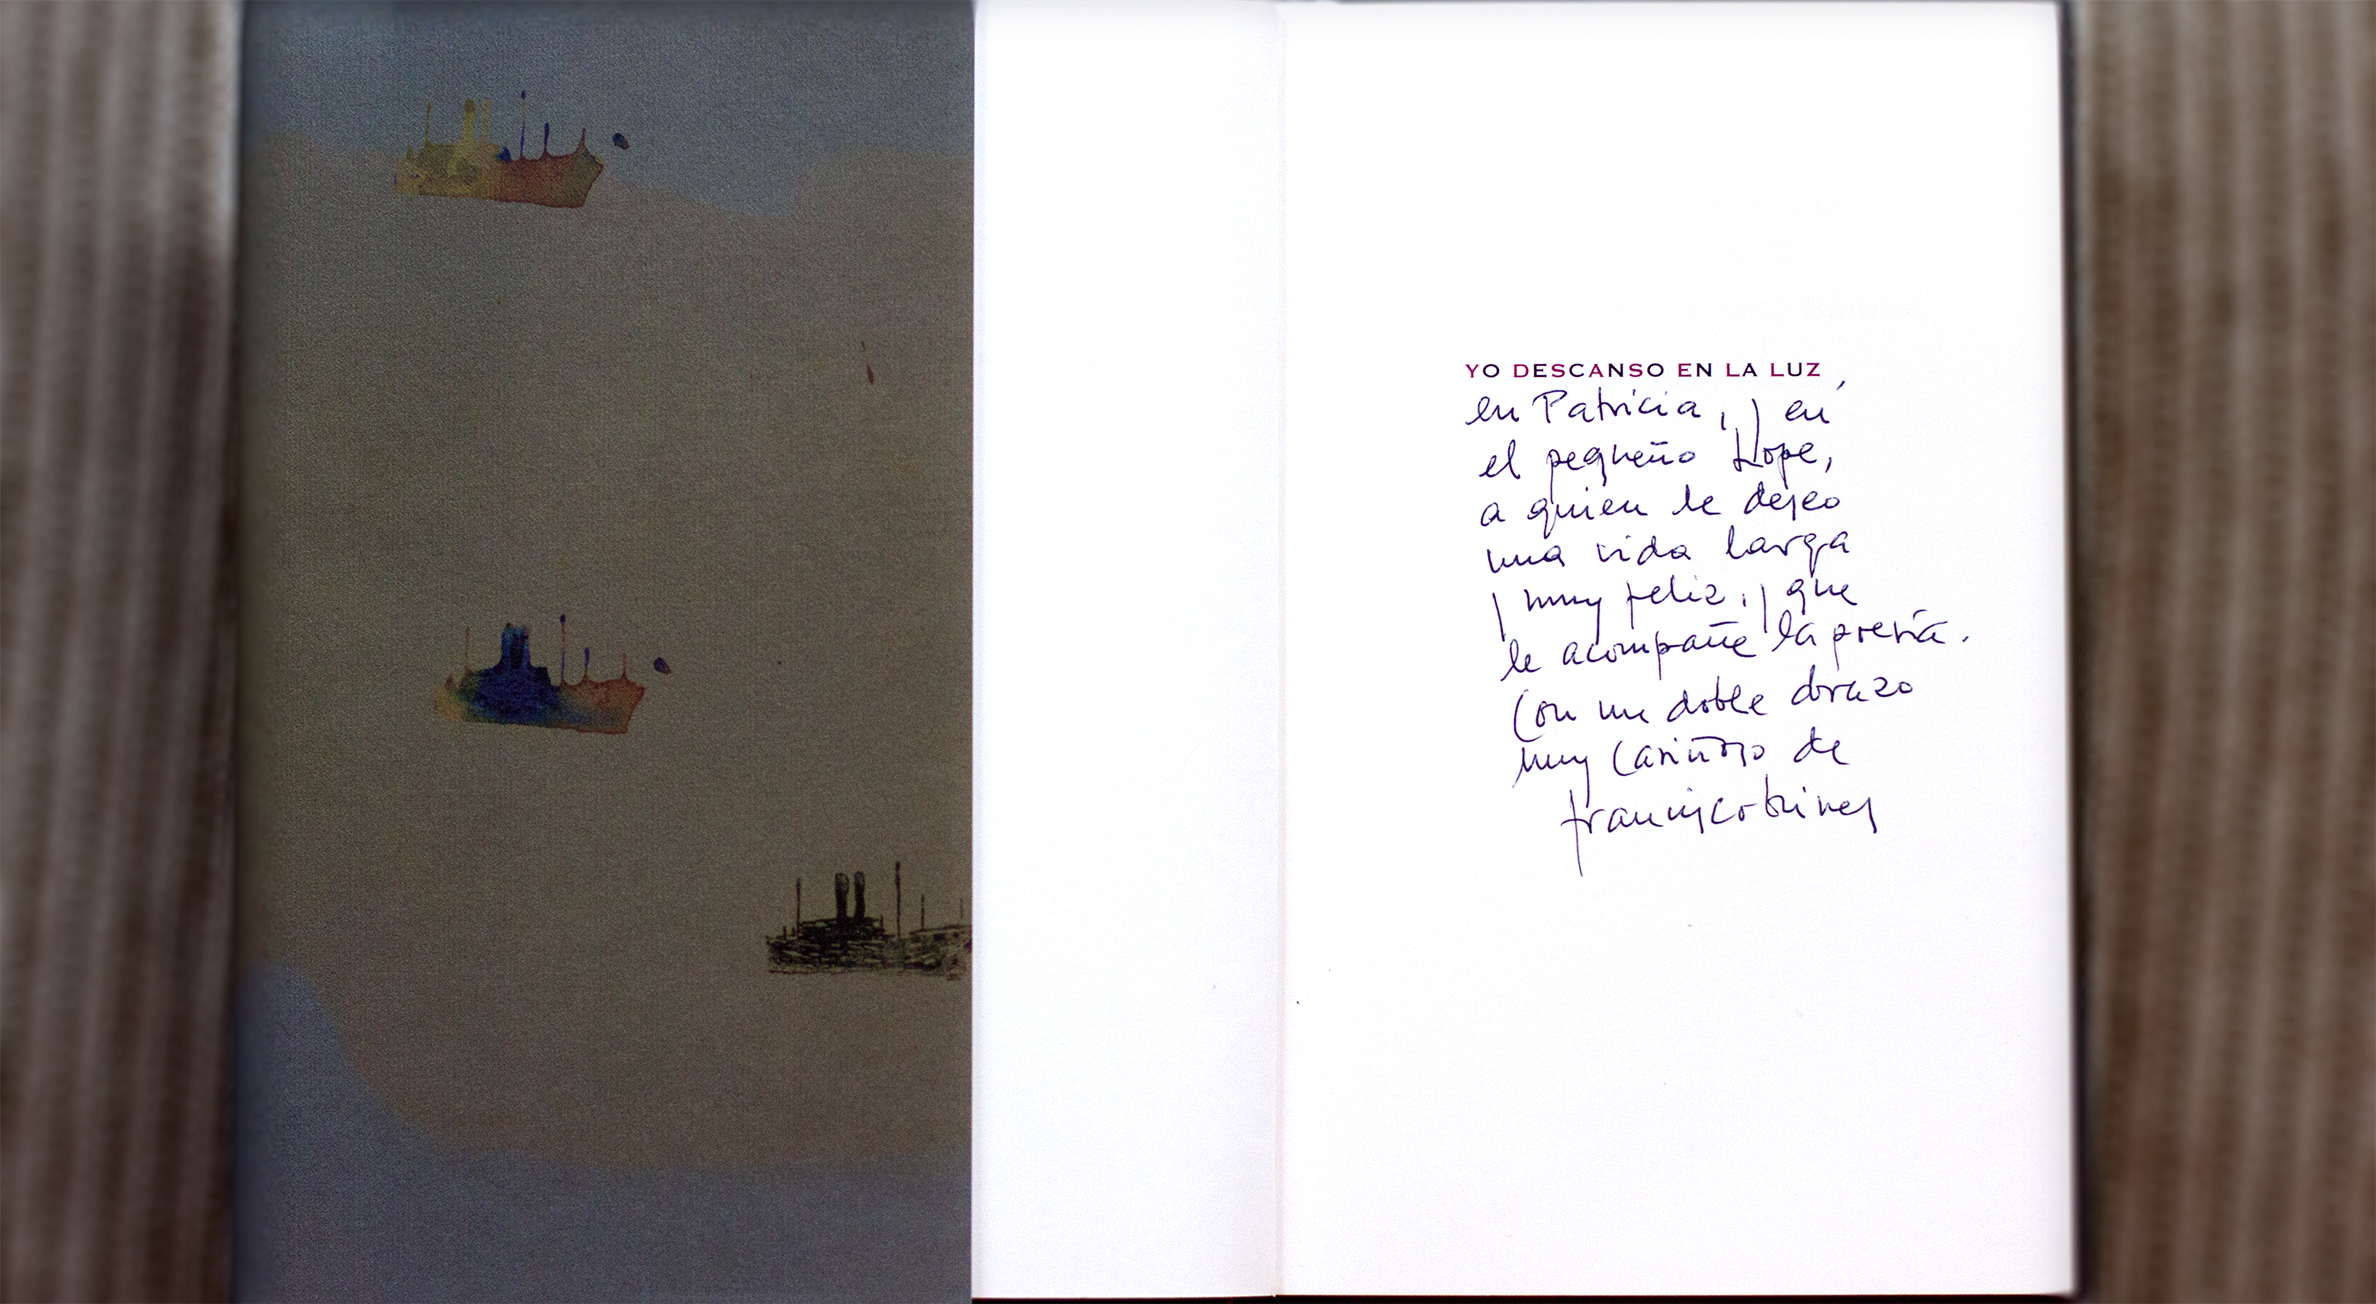 YO DESCANSO EN LA LUZ
en Patricia, y en
el pequeño Hope,
a quien le deseo
una vida larga
y muy feliz, y que
le acompañe la poesía.
Con un doble abrazo
muy cariñoso de
francisco brines